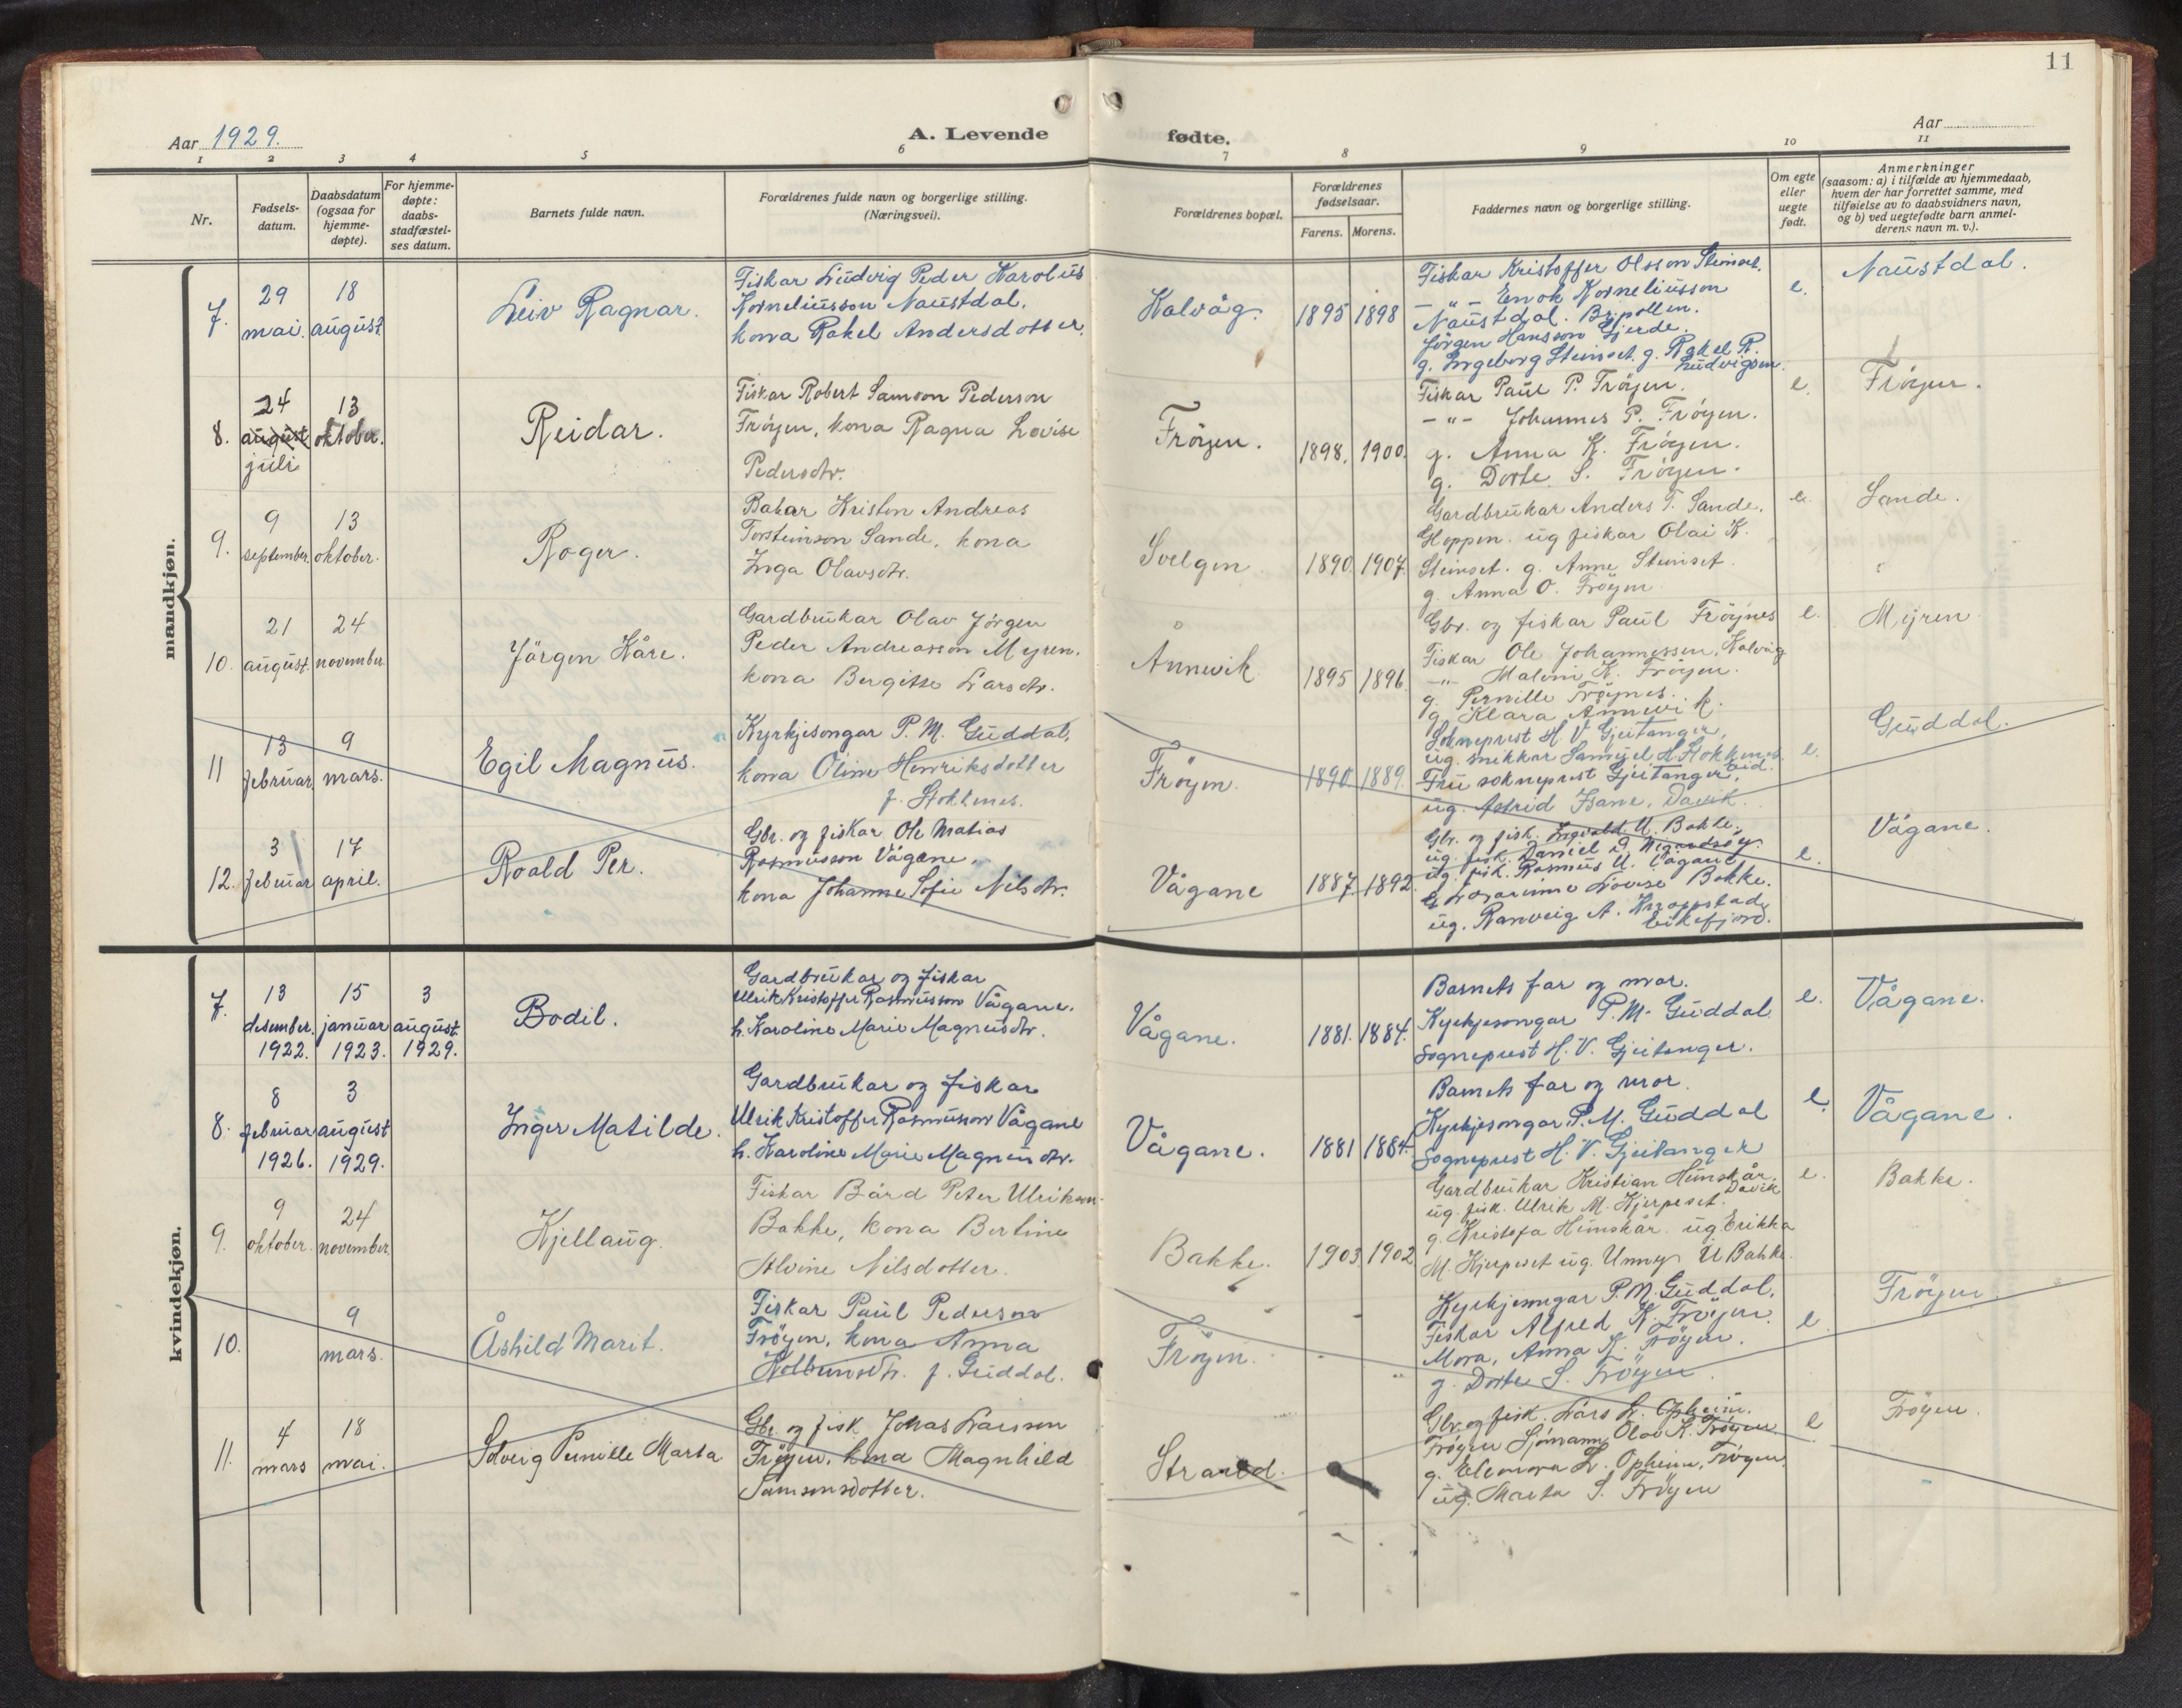 11
Aar 1929.
A. Levende
fødte.
Aar
1 2 3 4 5 6 7 8 9 10 11
Nr.
Fødsels-
datum.
Daabsdatum
(ogsaa for
hjemme-
døpte).
For hjemme-
døpte:
daabs-
stadfæstel-
ses datum.
Barnets fulde navn.
Forældrenes fulde navn og borgerlige stilling.
(Næringsvei).
Forældrenes bopæl.
Forældrenes
fødselsaar.
Farens. Morens.
Faddernes navn og borgerlige stilling.
Om egte
eller
uegte
født.
Anmerkninger
(saasom: a) i tilfælde av hjemmedaab,
hvem der har forrettet samme, med
tilføielse av to daabsvidners navn,
og b) ved uegtefødte barn anmel-
derens navn m. v.).
mandkjøn.
7.
29
mai.
18
august
Leiv Ragnar.
Fiskar Ludvig Peder Karolus
Korneliusson Naustdal.
kona Rakel Andersdotter.
Kalvåg.
1895 1898
Fiskar Kristoffer Olsson Steinset.
— " — Enok Korneliusson
Naustdal. Br.pollen.
Jörgen Hansson Gjerde.
g. Ingeborg Steinset. g. Rakel R.
Ludvigsen.
e.
Naustdal.
8.
24
august
juli
13
oktober.
Reidar.
Fiskar Robert Samson Pederson
Fröyen, kona Ragna Lovise
Pedersdtr.
Fröyen.
1898. 1900.
Fiskar Paul P. Fröyen.
— " — Johannes P. Fröyen.
g. Anna K. Fröyen.
g. Dorte S. Fröyen.
e.
Fröyen.
9.
9
september.
13
oktober.
Roger.
Bakar Kristen Andreas
Torsteinson Sande, kona
Inga Olavsdtr.
Svelgen
1890 1907.
Gardbrukar Anders T. Sande,
Hoppen. ug fiskar Olai K.
Steinset. g. Anne Steinset.
g. Anna O. Fröyen
e.
Sande.
10.
21
august.
24
november
Jörgen Kåre.
Gardbrukar Olav Jörgen
Peder Andreasson Myren.
kona Bergitte Larsdtr.
Ånnevik
1895 1896.
Gbr. og fiskar Paul Fröynes
Fiskar Ole Johannessen, Kalvåg
— " — Malvin K. Fröyen.
g. Pernille Fröynes.
g. Klara Ånnevik.
e.
Myren.
11
13
februar.
9
mars.
Egil Magnus.
Kyrkjesongar P. M. Guddal,
kona Oline Henriksdotter
f. Stokkenes.
Fröyen.
1890. 1889.
Sokneprest H. V. Gjeitanger,
ug. snikkar Samuel H. Stokkenes,
Eid.
Fru sokneprest Gjeitanger,
ug. Astrid Isane, Davik.
e.
Guddal.
12.
3
februar
17
april.
Roald Per.
Gbr. og fiskar Ole Matias
Rasmusson Vågane,
kona Johanne Sofie Nilsdtr.
Vågane
1887. 1892.
Gbr. og fisk. Ingvald U. Bakke,
ug. fisk. Daniel
ug. fisk. Rasmus U. Vågane
Lovise Bakke.
ug. Ranveig A. Knappstad,
Eikefjord.
e.
Vågane.
kvindekjøn.
7.
13
desember.
1922.
15
januar
1923.
3
august.
1929.
Bodil.
Gardbrukar og fiskar
Ulrik Kristoffer Rasmusson Vågane.
h. Karoline Marie Magnusdtr.
Vågane.
1881. 1884.
Barnets far og mor.
Kyrkjesongar P. M. Guddal.
Sogneprest H. V. Gjeitanger.
e.
Vågane.
8.
8
februar
1926.
3
august
1929.
Inger Matilde.
Gardbrukar og fiskar
Ulrik Kristoffer Rasmusson Vågane
h. Karoline Marie Magnusdtr.
Vågane.
1881 1884.
Barnets far og mor.
Kyrkjesongar P. M. Guddal
Sogneprest H. V. Gjeitanger
e.
Vågane.
9.
9
oktober.
24
november
Kjellaug.
Fiskar Bård Peter Ulriksen
Bakke, kona Bertine
Alvine Nilsdotter.
Bakke.
1903 1902
Gardbrukar Kristian Hemskår,
Davik
ug. fisk. Ulrik M. Hjerpeset.
g. Kristofa Hemskår. ug. Erikka
M. Hjerpeset ug. Unny U Bakke.
e.
Bakke.
10.
9
mars.
Åshild Marit.
Fiskar Paul Pederson
Fröyen, kona Anna
Kolbeinsdtr. f. Guddal.
Fröyen.
Kyrkjesongar P. M. Guddal,
Fiskar Alfred K. Fröyen.
Mora, Anna K. Fröyen.
g. Dorte S. Fröyen.
e.
Fröyen.
11.
4
mars
18
mai.
Solveig Pernille Marta
Gbr. og fisk. Jonas Larsson
Fröyen, kona Magnhild
Samsonsdotter.
Strand.
Gbr. og fisk. Lars L. Opheim.
Fröyen Sjömann Olai K. Fröyen
g. Eleonora L. Opheim, Fröyen,
ug. Marta S. Fröyen
e
Fröyen.